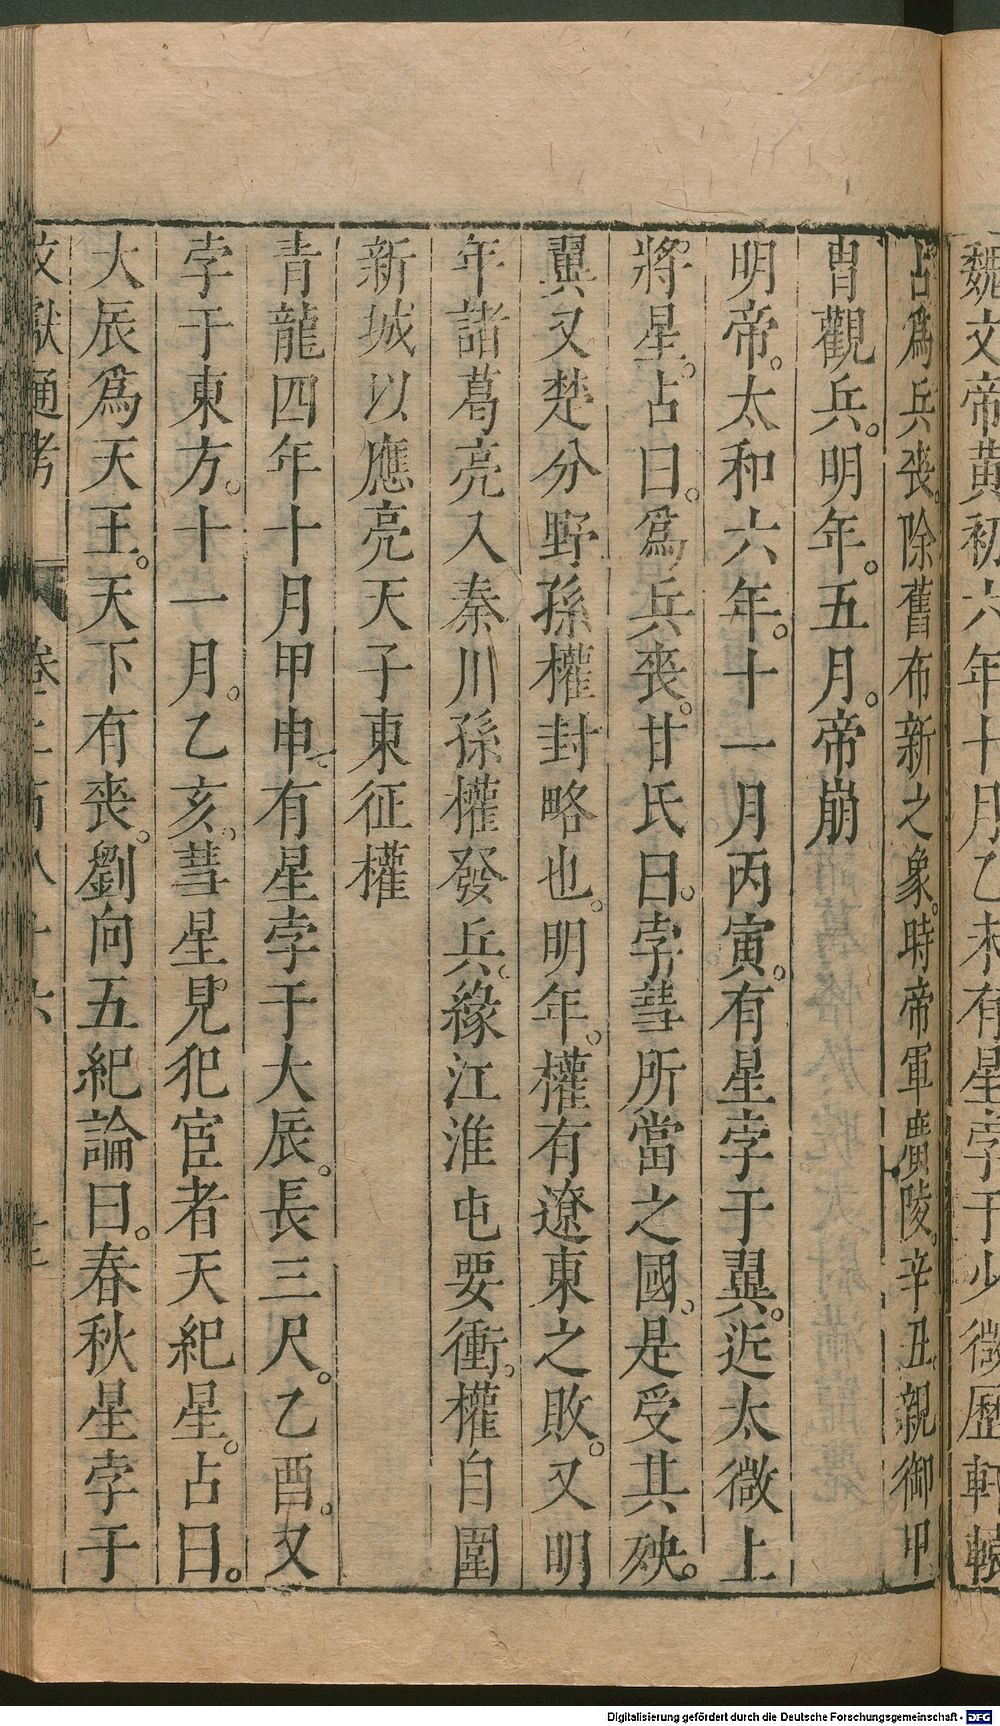 魏文帝黃初六年十月乙未有星孛于少微歷軒轅
占爲兵喪。除舊布新之象。時帝軍廣陵。辛丑。親御甲
胄觀兵。明年。五月。帝崩
明帝。太和六年。十一月丙寅。有星孛于翼。近太微上
將星。占曰。爲兵喪。甘氏曰。孛彗所當之國。是受其殃。
翼又楚分野孫權封略也。明年。權有遼東之敗。又明
年諸葛亮入秦川孫權發兵。緣江淮屯要衝。權自圍
新城以應亮天子東征權
青龍四年十月甲申。有星孛于大辰。長三尺。乙酉。又
孛于東方。十一月。乙亥。彗星見犯宦者天紀星。占曰。
大辰爲天王。天下有喪。劉向五紀論曰。春秋星孛于
文獻通考 卷二百八十六
Digitalisierung gefördert durch die Deutsche Forschungsgemeinschaft - DFG